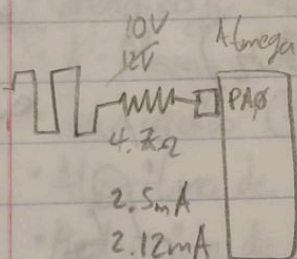 10V
12V
Atmega
PAØ
4.7Ω
2.5mA
2.12mA